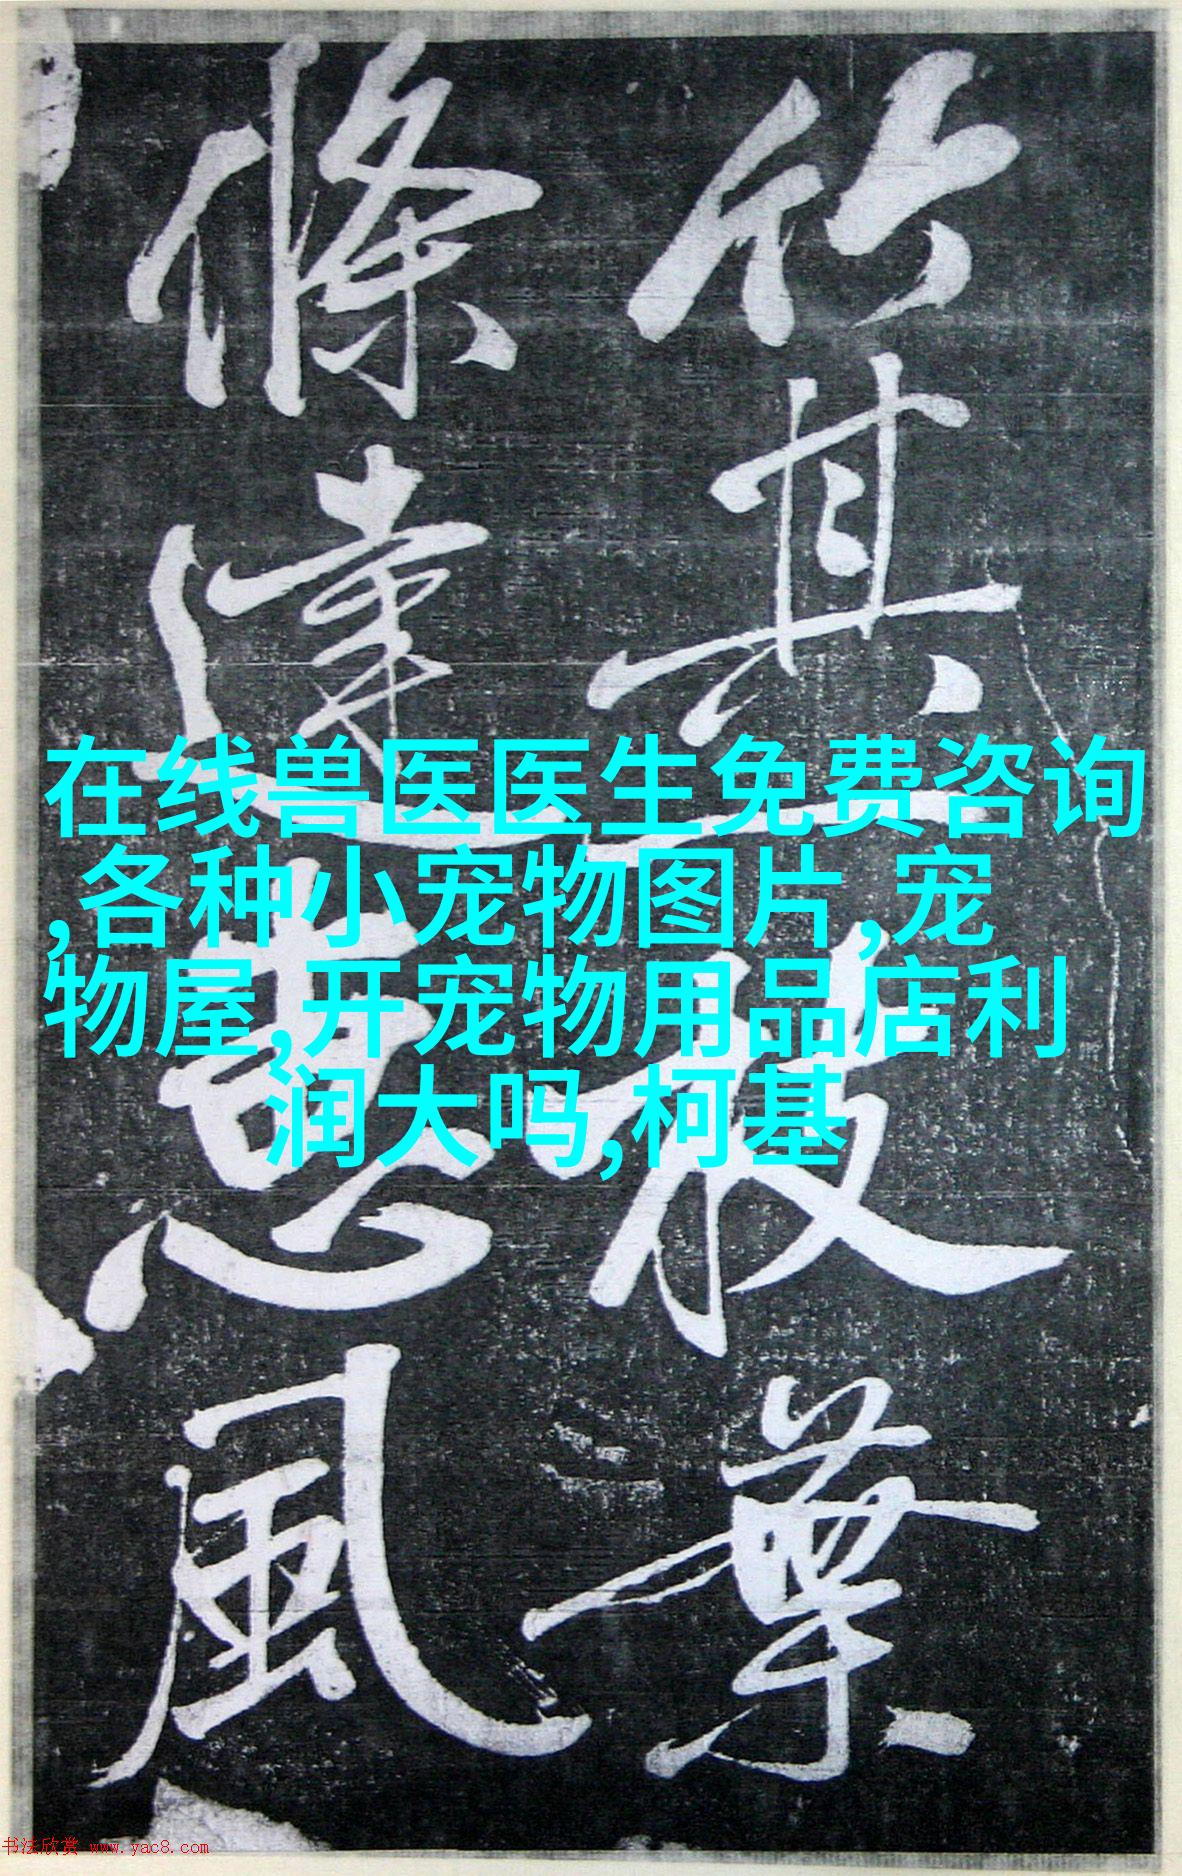 竹其枝葉
條達惠風
在线兽医医生免费咨询
,各种小宠物图片,宠
物屋,开宠物用品店利
润大吗,柯基
书法欣赏 www.yac8.com